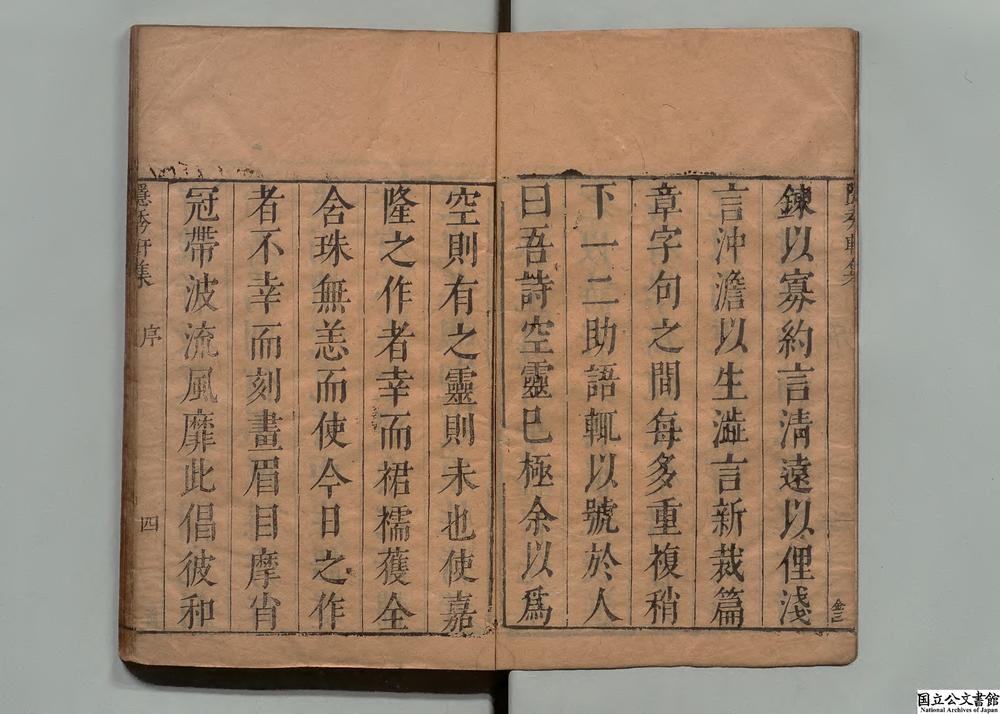 鍊以寡約言清遠以俚淺
言沖澹以生澁言新裁篇
章字句之間每多重複稍
下一二助語輒以號於人
曰吾詩空靈已極余以爲
空則有之靈則未也使嘉
隆之作者幸而裙襦獲全
含珠無恙而使今日之作
者不幸而刻畫眉目摩肖
冠帶波流風靡此倡彼和
隱秀軒集 序 四
国立公文書館
National Archives of Japan